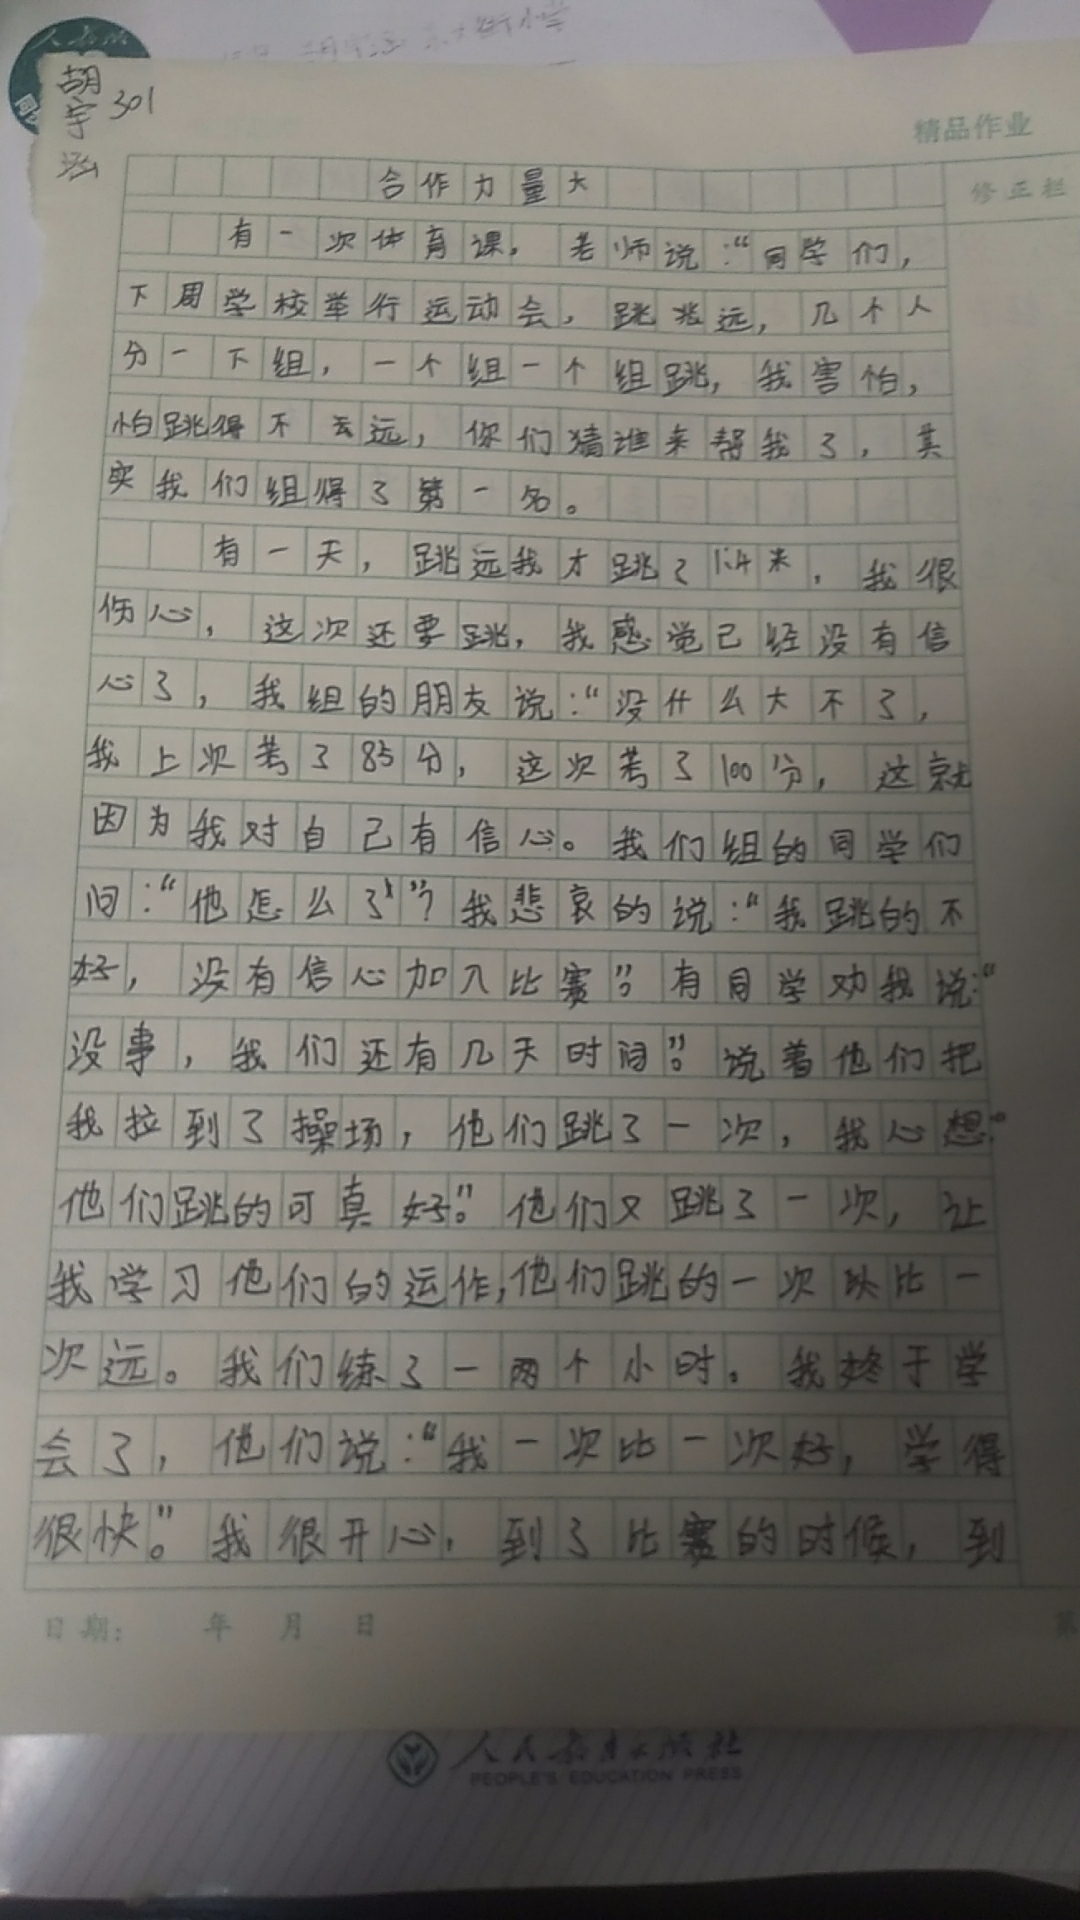 人教版
胡宇涵 301
精品作业
修正栏
合作力量大
有一次体育课，老师说：“同学们，
下周学校举行运动会，跳兆远，几个人
分一下组，一个组一个组跳，我害怕，
怕跳得不去远，你们猜谁来帮我了，其
实我们组得了第一名。
有一天，跳远我才跳了1.4米，我很
伤心，这次还要跳，我感觉已经没有信
心了，我组的朋友说：“没什么大不了，
我上次考了85分，这次考了100分，这就
因为我对自己有信心。我们组的同学们
问：“他怎么了”？我悲哀的说：“我跳的不
好，没有信心加入比赛”。有同学劝我说：“
没事，我们还有几天时间”。说着他们把
我拉到了操场，他们跳了一次，我心想：“
他们跳的可真好”。他们又跳了一次，让
我学习他们的运作，他们跳的一次比一
次远。我们练了一两个小时。我终于学
会了，他们说：“我一次比一次好，学得
很快”。我很开心，到了比赛的时候，到
日期： 年 月 日
第
人民教育出版社
PEOPLE'S EDUCATION PRESS